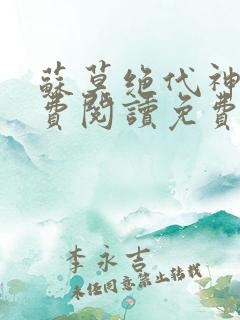 蘇莫绝代神
費閱讀免費
李永吉
未经同意禁止转载